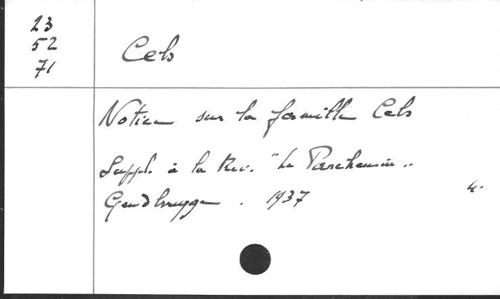 23
52
71
Cels
Notice sur la famille Cels
Suppl. à la Rev. "Le Parchemin"
Gendbrugge. 1937
4.